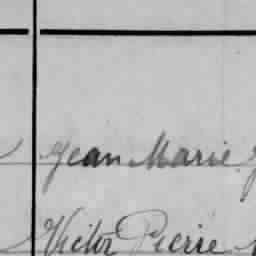 Jean Marie
Victor Pierre